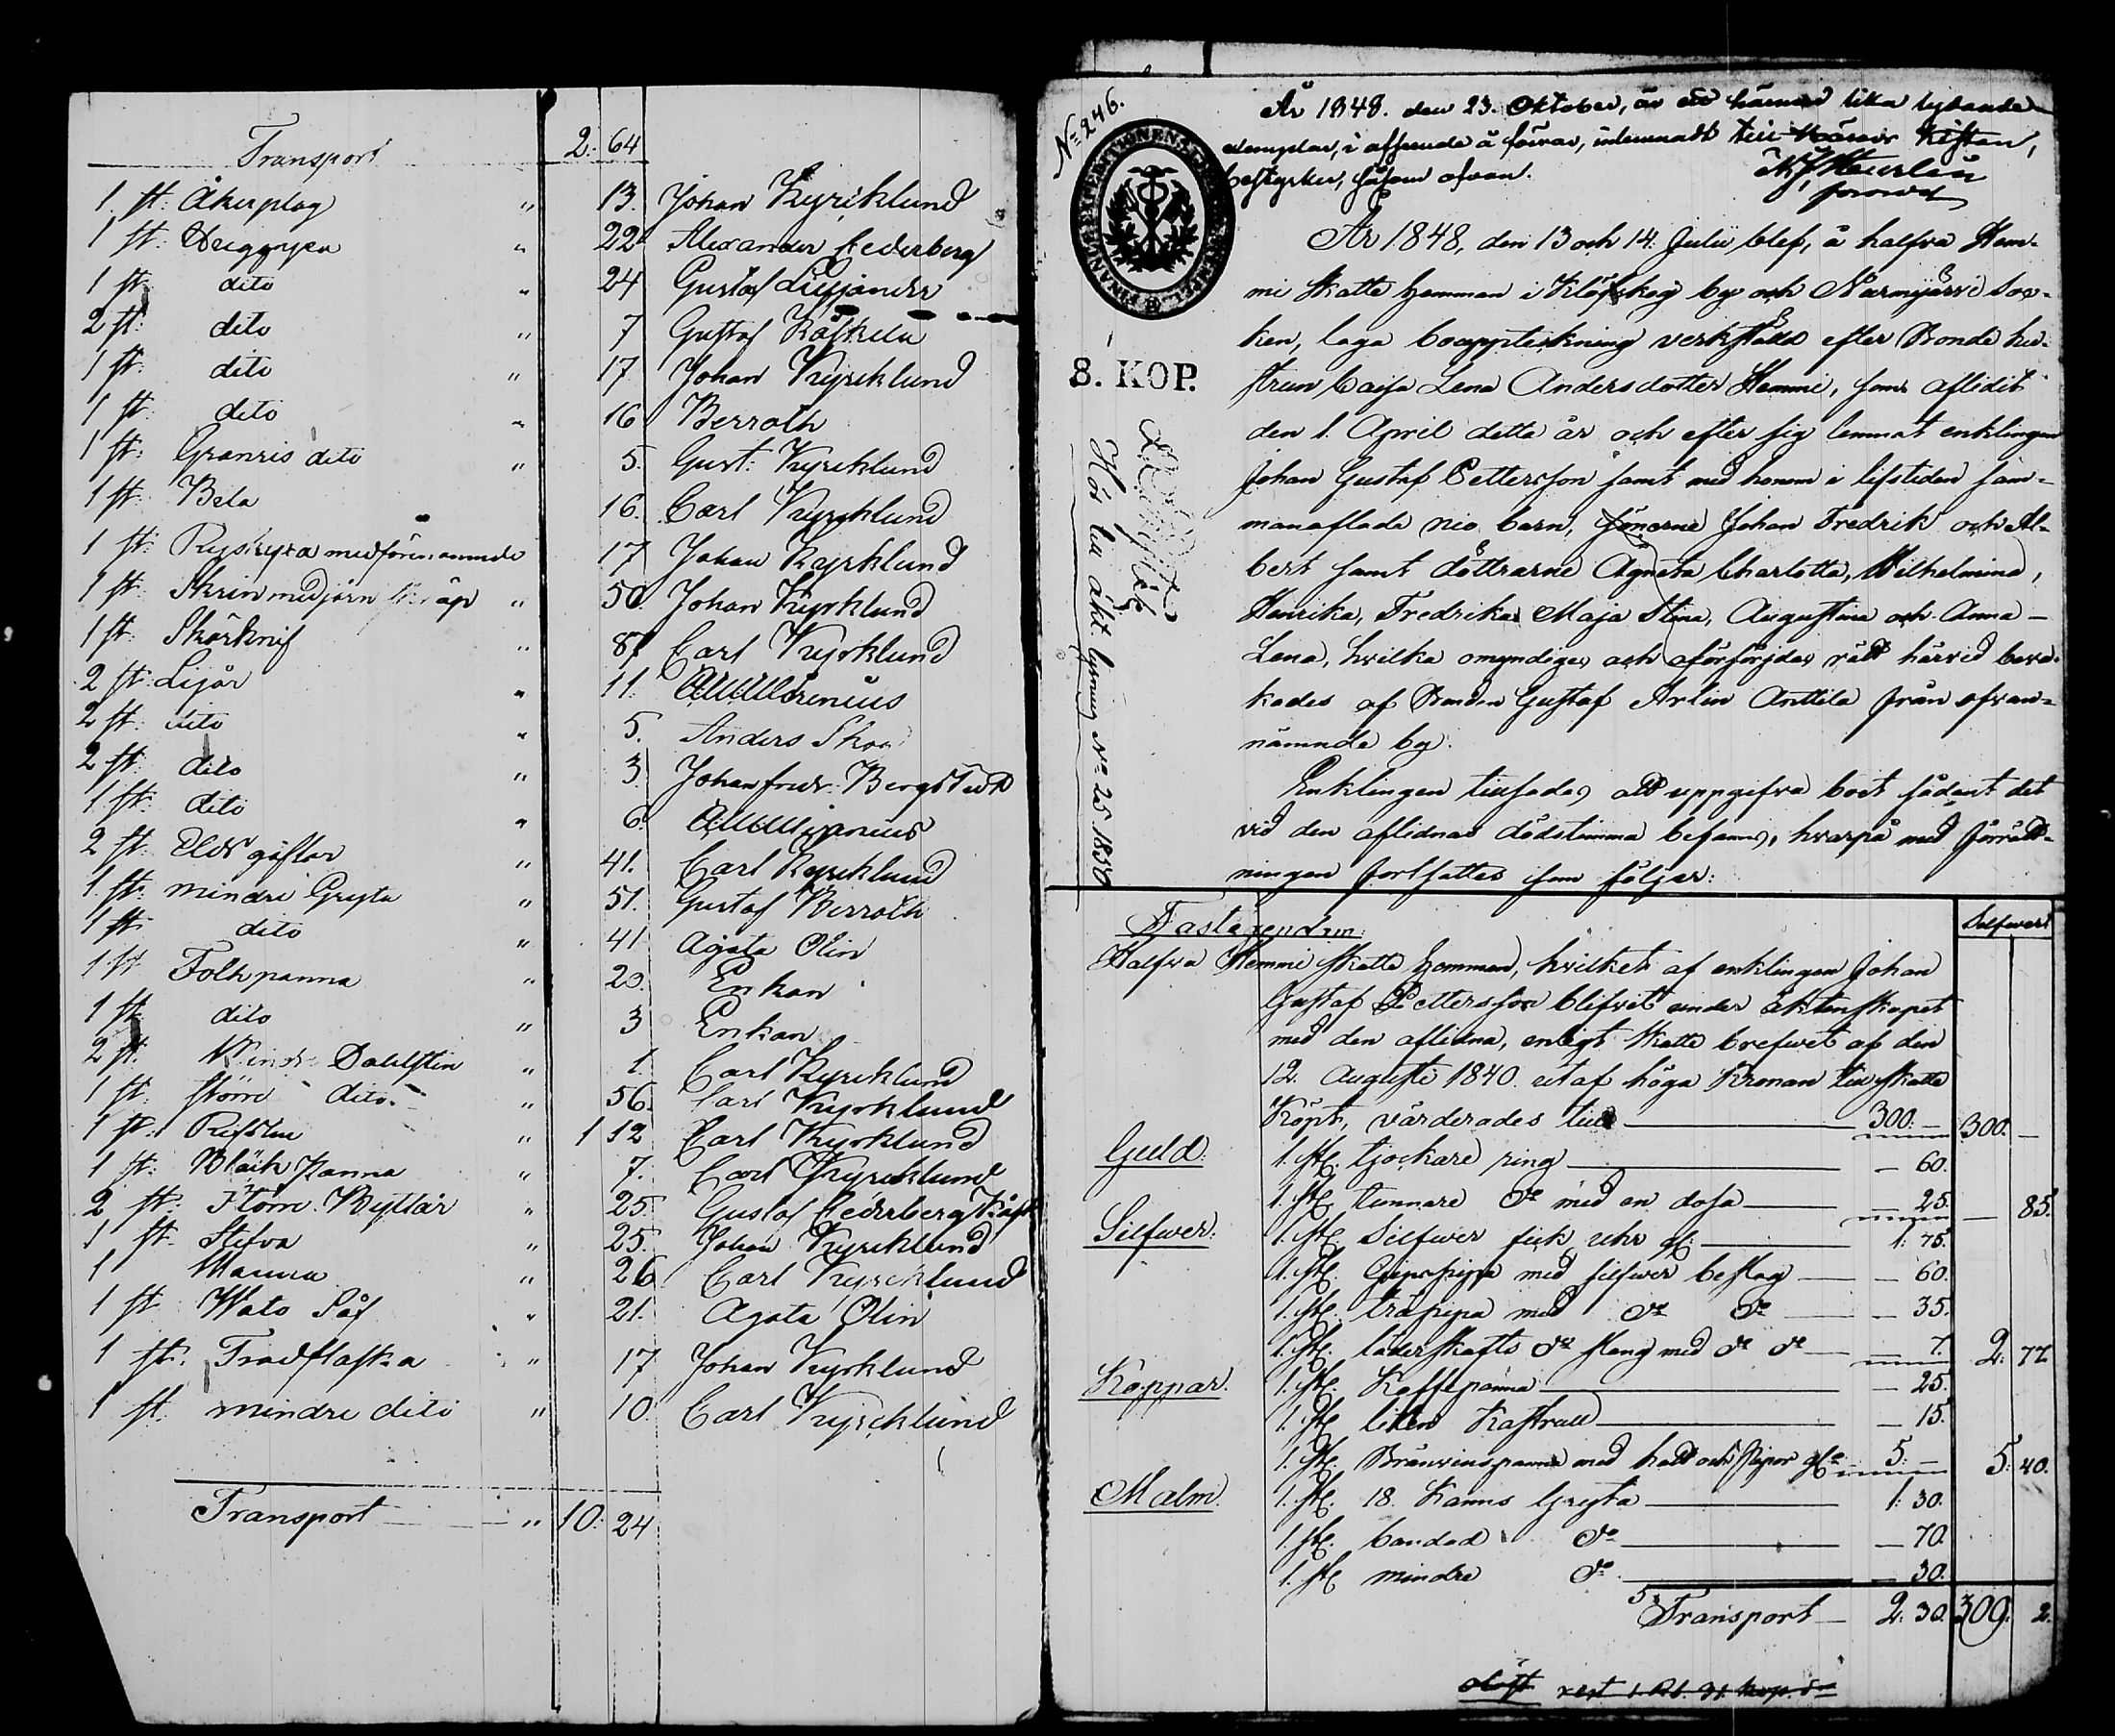 Transport 2: 64
1 st: Åkerplog " 13. Johan Kyrcklund
1 st: " 22 Alexander Cederberg
1 st: dito " 24 Gustaf Liljander
2 st: dito " 7 Gustaf
1 st: dito " 17 Johan Kyrcklund
1 st: dito " 16 Berroth
1 st: Granris dito " 5. Gust: Kyrcklund
1 st: Bela 16. Carl Kyrcklund
1 st: 17 Johan Kyrcklund
1 st: Skrin med järn " 50 Johan Kyrcklund
1 st: Skärknif " 87 Carl Kyrcklund
2 st: Lijår " 11.
2 st: dito " 5. Anders
2 st: dito " 3 Johan Fredr: Bergstedt
1 st: dito " 6.
2 st: Eldsgafflar " 41. Carl Kyrcklund
1 st: mindre Gryta " 51. Gustaf Berroth
1 st: dito " 41 Agata Olin
1 st: Folkpanna " 20. Enkan
1 st: dito " 3 Enkan
2 st: " 1. Carl Kyrcklund
1 st: större dito " 56. Carl Kyrcklund
1 st: " 1 12 Carl Kyrcklund
1 st: Bläck Panna " 7. Carl Kyrcklund
2 st: Större Byttor " 25. Gustaf Cederberg
1 st: Stifva " 25. Johan Kyrcklund
1 " 26 Carl Kyrcklund
1 st: Såf " 21. Agata Olin
1 st: Trädflaska " 17 Johan Kyrcklund
1 st: mindre dito " 10. Carl Kyrcklund
Transport " 10: 24
No 246.
År 1848. den 23. Oktober, är ett härmed lika lydande
exemplar, i afseende å förvar, inlemnadt till Härads Kistan,
bestyrker, såsom ofvan.
8. KOP.
Hör till åkt. lysning No 25 1850
År 1848, den 13 och 14. Julii blef, å halfva Hem-
mi Skatte hemman i Klöfskog by och Nurmijärvi Soc-
ken, laga bouppteckning verkställd efter Bonde hu-
strun Caisa Lena Andersdotter Hemmi, som aflidit
den 1. April detta år och efter sig lemnat enklingen
Johan Gustaf Pettersson samt med honom i lifstiden sam-
manaflade nio barn, sönerne Johan Fredrik och Al-
bert samt döttrarne Agneta Charlotta, Wilhelmina,
Henrika, Fredrika Maja Stina, Augustina och Anna
Lena, hvilka omyndiges och oförsörjdes rätt härvid beva-
kades af Bonden Gustaf Arlin Anttila från ofvan-
nämnde by.
Enklingen tillsades att uppgifva boet sådant det
vid den aflidnas dödstimma befanns, hvarpå med förrätt-
ningen fortsattes som följer:
Fastegendom: Silfwer
Halfva Hemmi skatte hemman, hvilket af enklingen Johan
Gustaf Pettersson blifvit under äktenskapet
med den aflidna, enligt Skatte brefvet af den
12. Augusti 1840. utaf höga Kronan till skatte
Köpt, värderades till 300. — 300. —
Guld. 1. st. tjockare ring — 60.
1. st. tunnare do med en dosa — 25. — 85.
Silfwer: 1. st. Silfwer fick uhr 1. 75.
1. st. Gipspipa med silfwer beslag — 60.
1. st. träpipa med do do — 35.
1. st. läderskafts do slang med do do — 7. 2: 77
Koppar. 1. st. Kaffepanna — 25.
1. st. liten Kastrull — 15.
1. st. Bränvinspanna med hatt och Pipor 5. — 5. 40.
Malm. 1. st. 18. Kanns Gryta 1. 30.
1. st. bandad do — 70.
1. st. mindre do — 30.
Transport 2: 30. 309. 2.